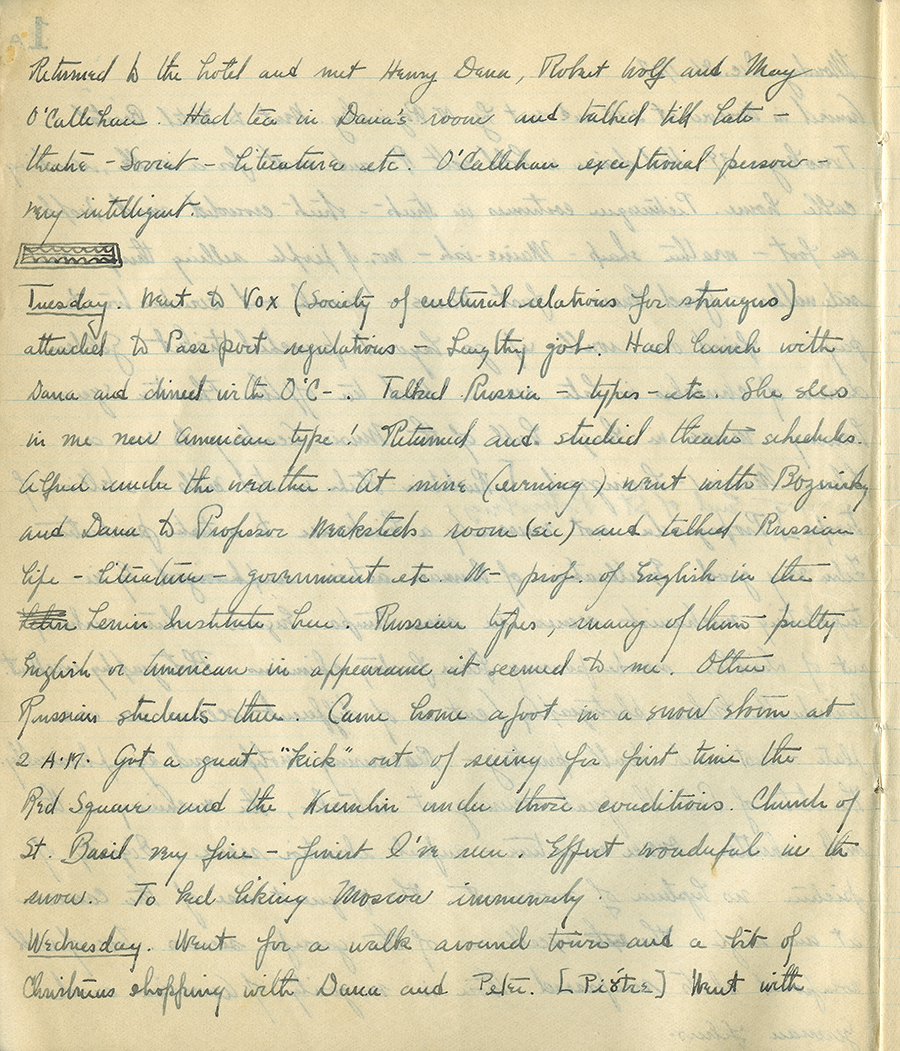 Returned to the hotel and met Henry Dana, Robert Wolf and May
O'Callehan. Had tea in Dana's room and talked till late –
theatre – Soviet – literature etc. O'Callehan exceptional person –
very intelligent.
Tuesday. Went to Vox (Society of cultural relations for strangers)
attended to Pass port regulations – Lengthy job. Had lunch with
Dana and dined with O'C–. Talked Russia – types – etc. She sees
in me new American type! Returned and studied theatre schedules.
Alfred under the weather. At nine (evening) went with
and Dana to Professor room (sic) and talked Russian
life – literature – government etc. W– prof. of English in the
Lenin Institute here. Russian types, many of them pretty
English or American in appearance it seemed to me. Other
Russian students there. Came home afoot in a snow storm at
2 A.M. Got a great "kick" out of seeing for first time the
Red Square and the Kremlin under those conditions. Church of
St. Basil very fine – finest I've seen. Effect wonderful in the
snow. To bed liking Moscow immensely.
Wednesday. Went for a walk around town and a bit of
Christmas shopping with Dana and Peter. [Piótre] Went with